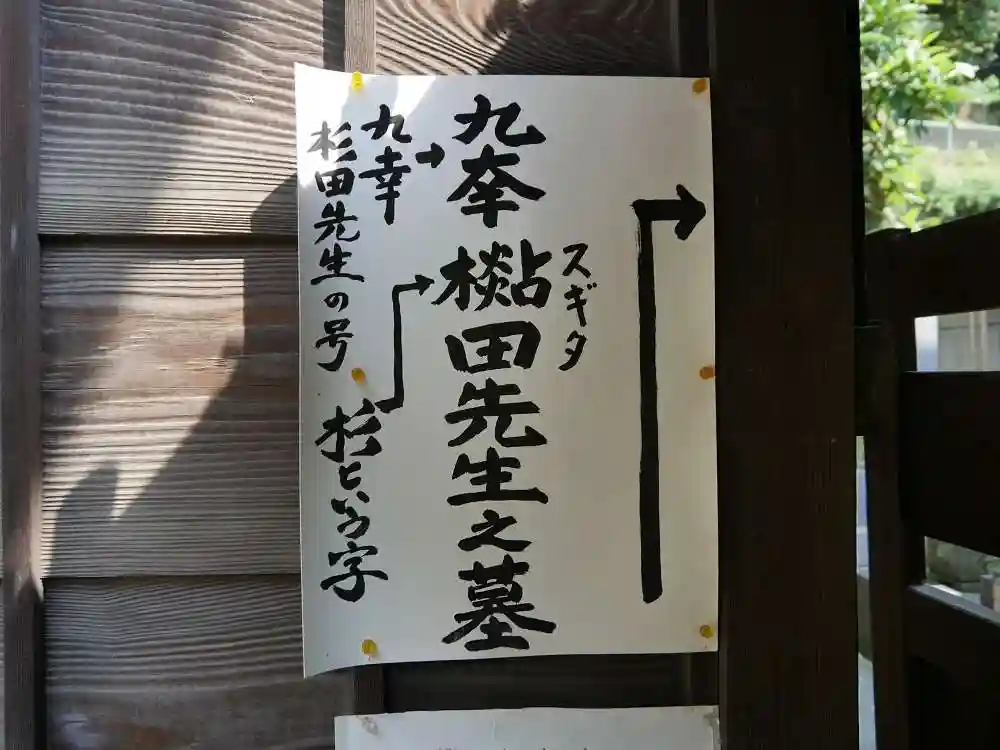 スギタ
九㚔檆田先生之墓
九幸
杉田先生の号
杉という字